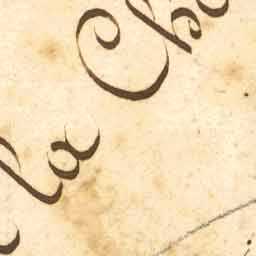 la Ch